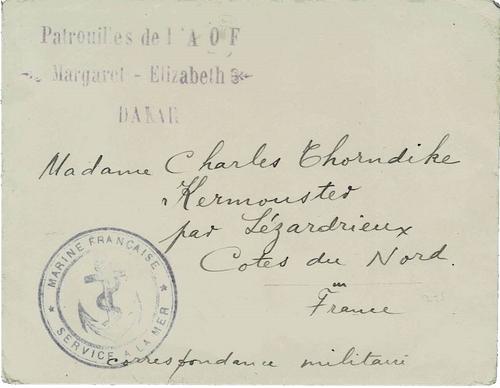 Patrouilles de l'A O F
Margaret - Elizabeth
DAKAR
Madame Charles Thorndike
Kermouster
par Lézardrieux
Cotes du Nord.
France
MARINE FRANÇAISE
SERVICE A LA MER
correspondance militaire